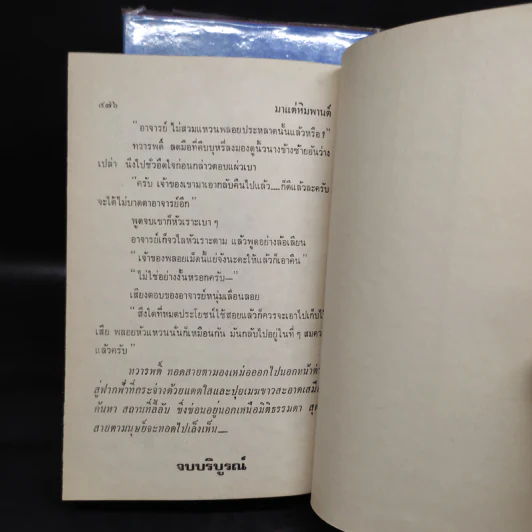 ๔๗๖
มาแต่หิมพานต์
“อาจารย์ ไม่สวมแหวนพลอยประหลาดนั้นแล้วหรือ ?”
ทวารพดี ลดมือที่คีบบุหรี่ลงมองดูนิ้วนางข้างซ้ายอันว่าง
เปล่า นิ่งไปชั่วอึดใจก่อนกล่าวตอบแผ่วเบา
“ครับ เจ้าของเขามาเอากลับคืนไปแล้ว....ก็ดีแล้วละครับ
จะได้ไม่บาดตาอาจารย์อีก”
พูดจบเขาก็หัวเราะเบา ๆ
อาจารย์เก็จวไลหัวเราะตาม แล้วพูดอย่างล้อเลียน
“เจ้าของพลอยเม็ดนี้แย่จังนะคะให้แล้วก็เอาคืน”
“ไม่ใช่อย่างงั้นหรอกครับ—”
เสียงตอบของอาจารย์หนุ่มเลื่อนลอย
“สิ่งใดที่หมดประโยชน์ใช้สอยแล้วก็ควรจะเอาไปเก็บไว้
เสีย พลอยหัวแหวนนั้นก็เหมือนกัน มันกลับไปอยู่ในที่ ๆ
แล้วครับ”
ทวารพดี ทอดสายตามองเหม่อออกไปนอกหน้าต่าง
สู่ฟากฟ้าที่กระจ่างด้วยแดดใสและปุยเมฆขาวสะอาด
ค้นหา สถานที่ลี้ลับ ซึ่งซ่อนอยู่นอกเหนือมิติธรรมดา
สายตามนุษย์จะทอดไปเล็งเห็น....
จบบริบูรณ์